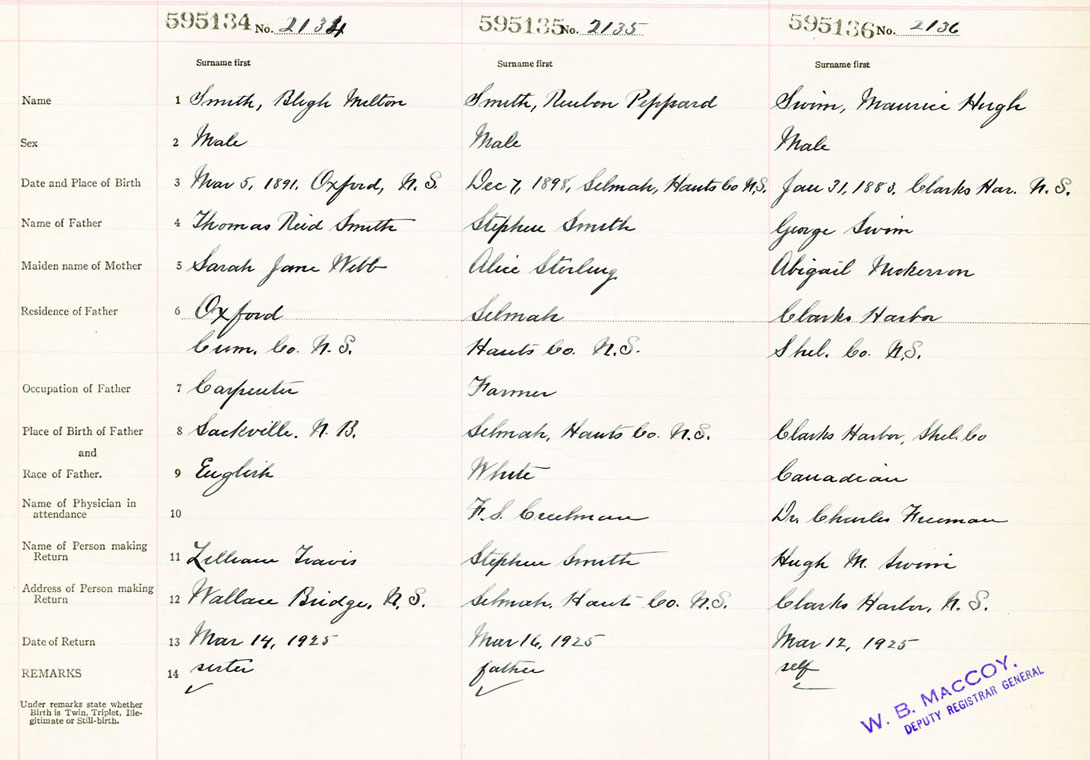 595134 No. 2134 595135 No. 2135 595136 No. 2136
Surname first Surname first Surname first
Name 1 Smith, Bligh Milton Smith, Reubon Peppard Swim, Maurice Hugh
Sex 2 Male Male Male
Date and Place of Birth 3 Mar 5, 1891, Oxford, N.S. Dec 7, 1898, Selmah, Hants Co N.S. Jan 31, 1883, Clarks Har. N.S.
Name of Father 4 Thomas Reid Smith Stephen Smith George Swim
Maiden name of Mother 5 Sarah Jane Webb Alice Sterling Abigail Nickerson
Residence of Father 6 Oxford Selmah Clarks Harbor
Cum. Co. N.S. Hants Co. N.S. Shel. Co. N.S.
Occupation of Father 7 Carpenter Farmer
Place of Birth of Father 8 Sackville. N.B. Selmah, Hants Co. N.S. Clarks Harbor, Shel. Co
and
Race of Father. 9 English White Canadian
Name of Physician in
attendance 10 F.S. Creelman Dr. Charles Freeman
Name of Person making
Return 11 Lilliean Travis Stephen Smith Hugh M. Swim
Address of Person making
Return 12 Wallace Bridge, N.S. Selmah, Hants Co. N.S. Clarks Harbor, N.S.
Date of Return 13 Mar 14, 1925 Mar 16, 1925 Mar 12, 1925
REMARKS 14 sister father self
Under remarks state whether
Birth is Twin, Triplet, Ille-
gitimate or Still-birth.
W. B. MACCOY.
DEPUTY REGISTRAR GENERAL